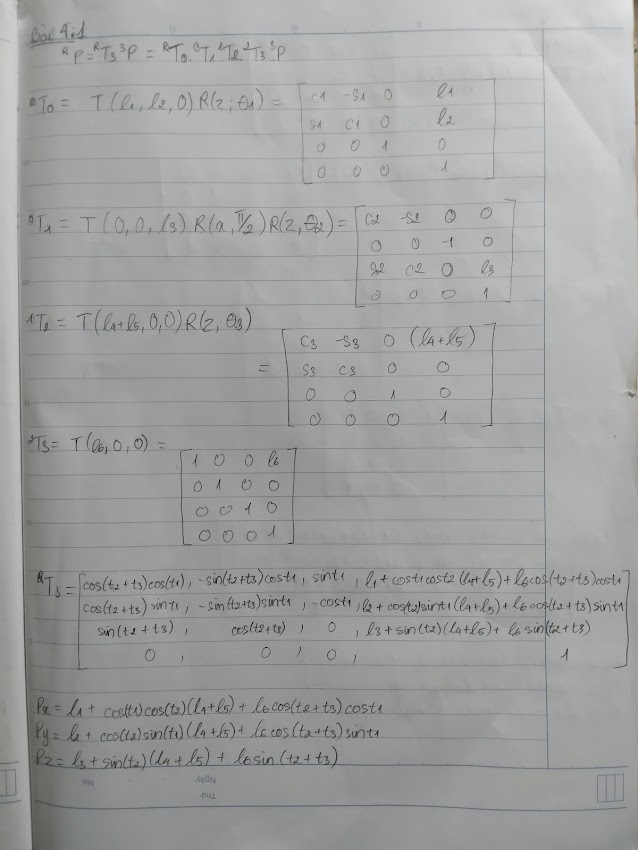 Bài 4.1
ᴿP = ᴿT₃ ³P = ᴿT₀ ⁰T₁ ¹T₂ ²T₃ ³P
ᴿT₀ = T(l₁, l₂, 0) R(z, θ₁) =
c1 -s1 0 l1
s1 c1 0 l2
0 0 1 0
0 0 0 1
⁰T₁ = T(0, 0, l₃) R(x, π/2) R(z, θ₂) =
c2 -s2 0 0
0 0 -1 0
s2 c2 0 l3
0 0 0 1
¹T₂ = T(l₄+l₅, 0, 0) R(z, θ₃)
=
c3 -s3 0 (l4+l5)
s3 c3 0 0
0 0 1 0
0 0 0 1
²T₃ = T(l₆, 0, 0) =
1 0 0 l6
0 1 0 0
0 0 1 0
0 0 0 1
ᴿT₃ =
cos(t2+t3)cos(t1), -sin(t2+t3)cost1, sint1, l1 + cost1cost2(l4+l5) + l6cos(t2+t3)cost1
cos(t2+t3)sint1, -sin(t2+t3)sint1, -cost1, l2 + cos(t2)sint1(l4+l5) + l6cos(t2+t3)sint1
sin(t2+t3), cos(t2+t3), 0, l3 + sin(t2)(l4+l5) + l6sin(t2+t3)
0, 0, 0, 1
Px = l1 + cos(t1)cos(t2)(l4+l5) + l6cos(t2+t3)cost1
Py = l2 + cos(t2)sin(t1)(l4+l5) + l6cos(t2+t3)sint1
Pz = l3 + sin(t2)(l4+l5) + l6sin(t2+t3)
Thứ
Ngày
No